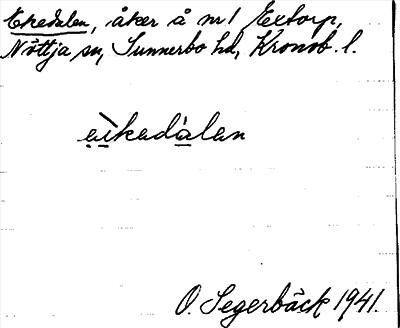 Ekedalen, åker å nr 1 Extorp,
Nöttja sn, Sunnerbo hd, Kronob. l.
ẹị̀kadàlan
O. Segerbäck 1941.